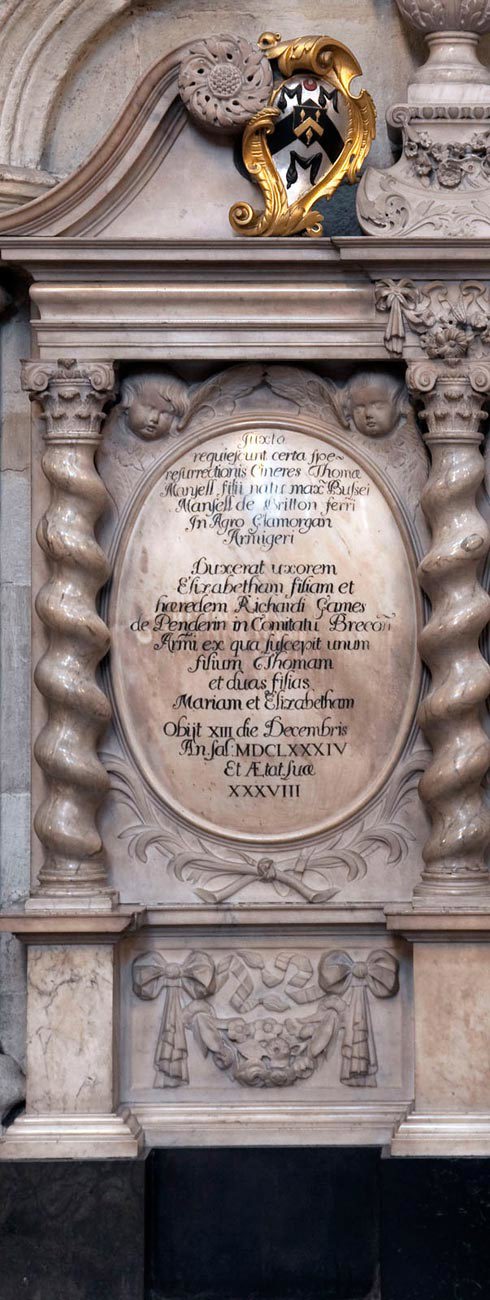 Juxta
requiescunt certa spe
resurrectionis Cineres Thomæ
Mansell filii natu max: Bussei
Mansell de Britton ferri
In Agro Glamorgan
Armigeri
Duxerat uxorem
Elizabetham filiam et
hæredem Richardi Games
de Penderin in Comitatu Brecoñ
Armi ex qua suscepit unum
filium Thomam
et duas filias
Mariam et Elizabetham
Obijt XIII die Decembris
An sal: MDCLXXXIV
Et Ætat suæ
XXXVIII